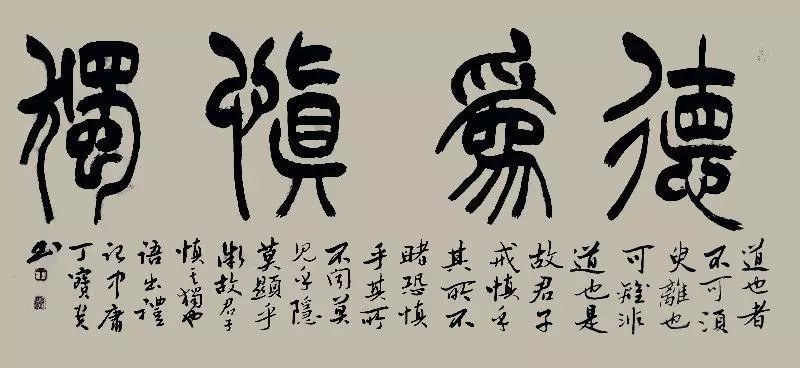 德為慎獨
道也者
不可須
臾離也
可離非
道也是
故君子
戒慎乎
其所不
睹恐慎
乎其所
不聞莫
見乎隱
莫顯乎
微故君子
慎其獨也
語出禮
記中庸
丁寶